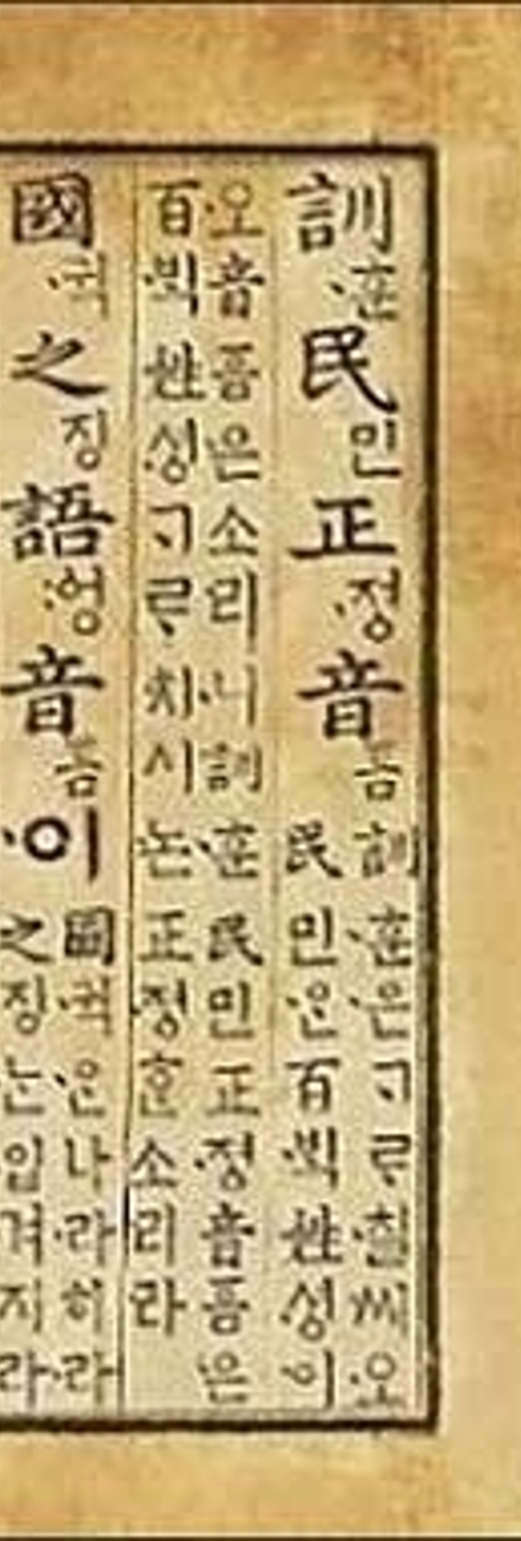 訓·훈民민正·졍音ᅙᅳᆷ
訓·훈·은ᄀᆞᄅᆞ·칠씨·오
民민·ᄋᆞᆫ百·ᄇᆡᆨ姓·셩·이
·오音ᅙᅳᆷ은소리·니訓·훈民민正·졍音ᅙᅳᆷ은
百·ᄇᆡᆨ姓·셩ᄀᆞᄅᆞ치시논正·졍ᄒᆞᆫ소리라
國·귁之징語:엉音ᅙᅳᆷ·이
國·귁·ᄋᆞᆫ나·라히·라
之징ᄂᆞᆫ입·겨지·라